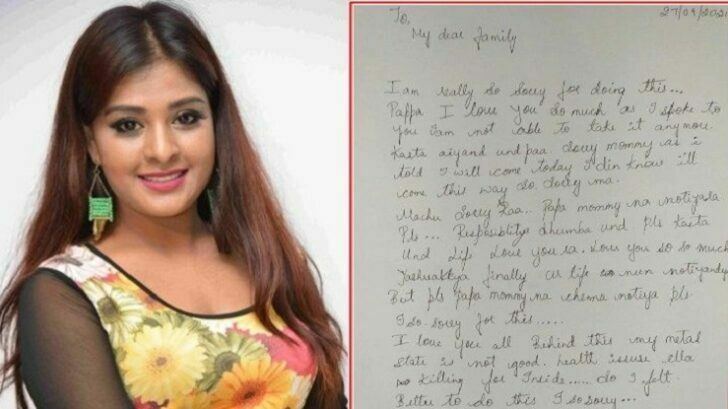 27/09/202
To,
My dear family
I am really so sorry for doing this...
Pappa I love you so much as I spoke to
you i am not able to take it anymore
Kasta und paa sorry mommy as i
told I will come today I din know i'll
come this way so sorry ma.
Machu sorry Raa.. Papa mommy na
Pls... dhumba und pls Kasta
und life Love you ra. Love you so so much
finally life nun
But pls Papa mommy na notiya pls
I so sorry for this.....
I love you all Behind this my metal
state is not good. health issuse ella
killing for Inside...... so I felt
Better to do this I so sorry...